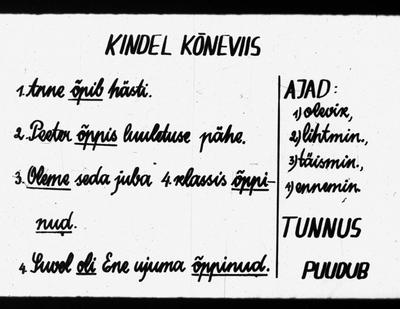 KINDEL KÕNEVIIS
1. Anne õpib hästi.
2. Peeter õppis luuletuse pähe.
3. Oleme seda juba 4. klassis õppi-
nud.
4. Suvel oli Ene ujuma õppinud.
AJAD:
1) olevik,
2) lihtmin.,
3) täismin.,
4) ennemin.
TUNNUS
PUUDUB